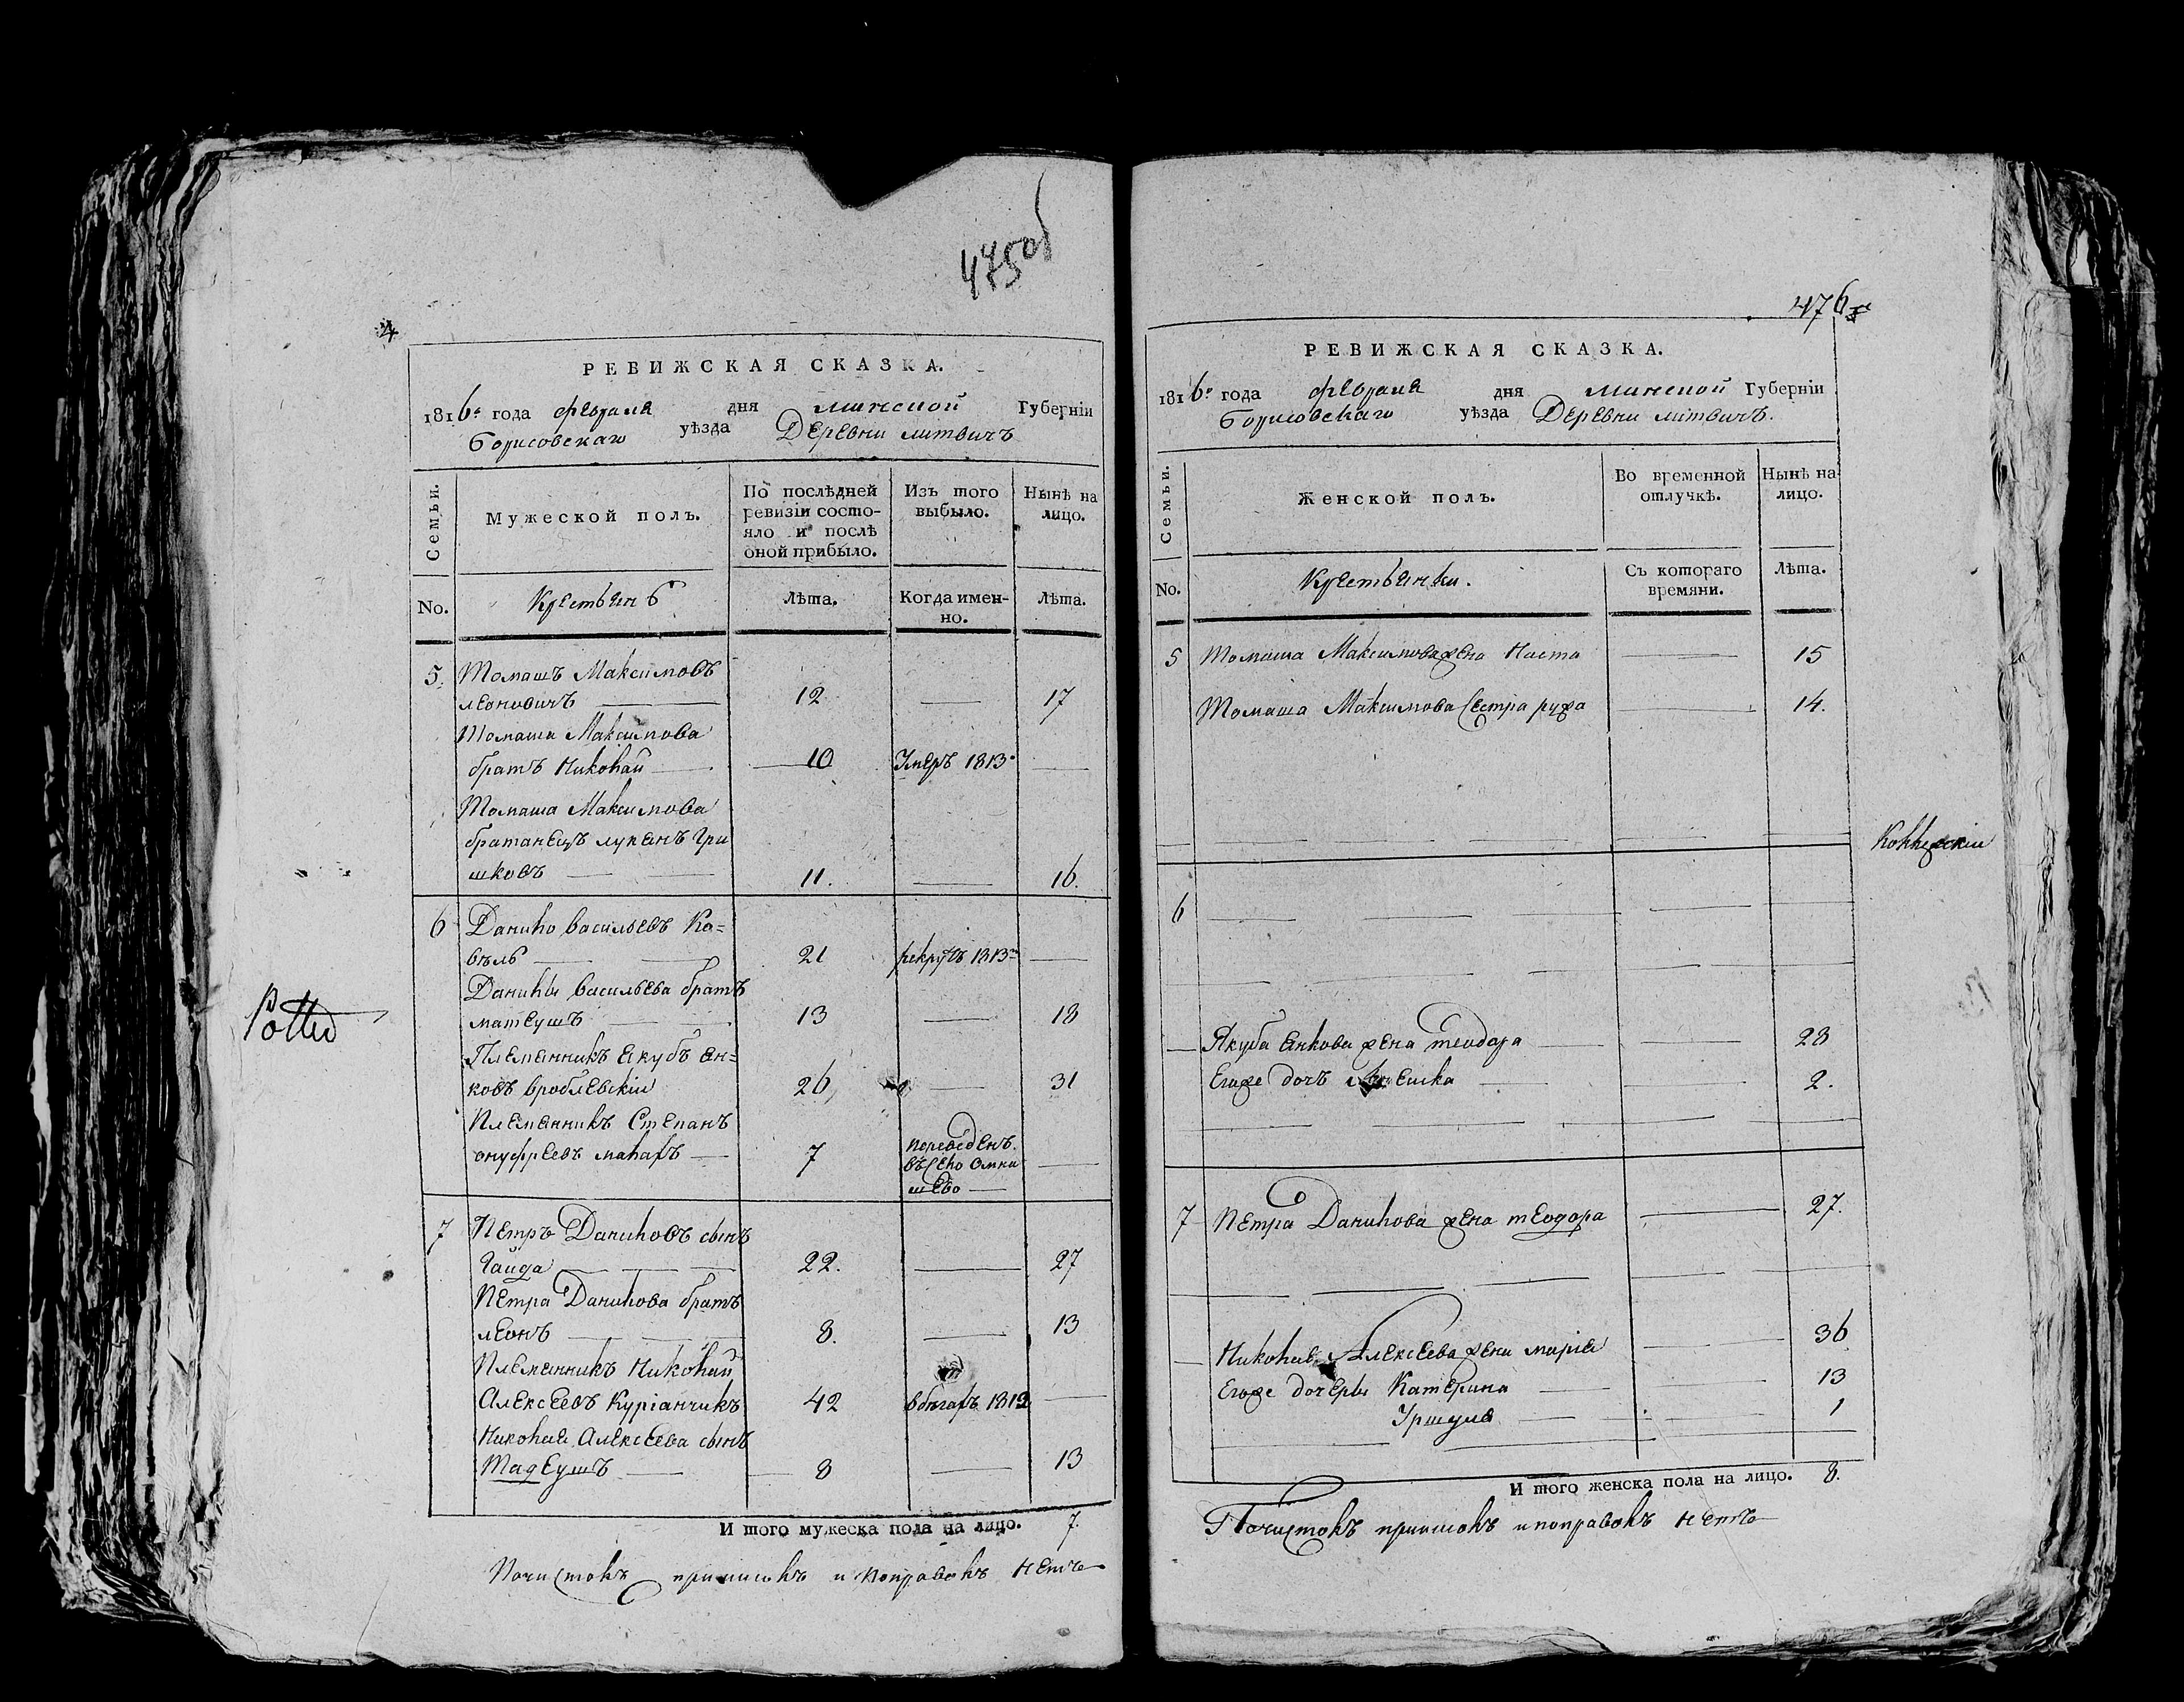 475 об
4
РЕВИЖСКАЯ СКАЗКА.
1816го года февраля дня минской Губерніи
Борисовскаго уѣзда Деревни литвичъ
Семьи.
Мужеской полъ.
По послѣдней ревизіи состояло и послѣ оной прибыло.
Изъ того выбыло.
Нынѣ на лицо.
No. Крестьянъ Лѣта. Когда именно. Лѣта.
5. Томашъ Максимовъ
леоновичъ — 12 — 17
Томаша Максимова
братъ Николай — 10 Умеръ 1813го —
Томаша Максимова
братанецъ лукянъ Гри
шковъ — 11. — 16.
6 Данило васильевъ Ко=
вѣль — 21 рекрутъ 1813го —
Данилы васильева братъ
матеушъ — 13 — 18
Племянникъ якубъ ян=
ковъ вроблевскій 26 — 31
Племянникъ Степанъ
онуфреевъ — 7 переведенъ
въ село
—
7 Петръ Даниловъ сынъ
Гайда — 22. — 27
Петра Данилова братъ
леонъ — 8. — 13
Племянникъ Николай
Алексеевъ Куріанчикъ 42 в бегахъ 1812 —
Николая Алексеева сынъ
Тадеушъ — 8 — 13
И того мужеска пола на лицо. 7.
Почистокъ приписокъ и поправокъ нетъ
476
РЕВИЖСКАЯ СКАЗКА.
1816го года февраля дня минской Губерніи
Борисовскаго уѣзда Деревни литвичъ.
Семьи.
Женской полъ.
Во временной отлучкѣ.
Нынѣ на лицо.
No. Крестьянки. Съ котораго времяни. Лѣта.
5 Томаша Максимова жена Наста — 15
Томаша Максимова Сестра ружа — 14.
6 —
— Якуба янкова жена теодора — 28
Егоже дочъ — 2.
7 Петра Данилова жена теодора — 27.
— Николая Алексеева жена марія — 36
Егоже дочеры Катерина — 13
Уршуля — 1
И того женска пола на лицо. 8.
Почистокъ приписокъ и поправокъ нетъ